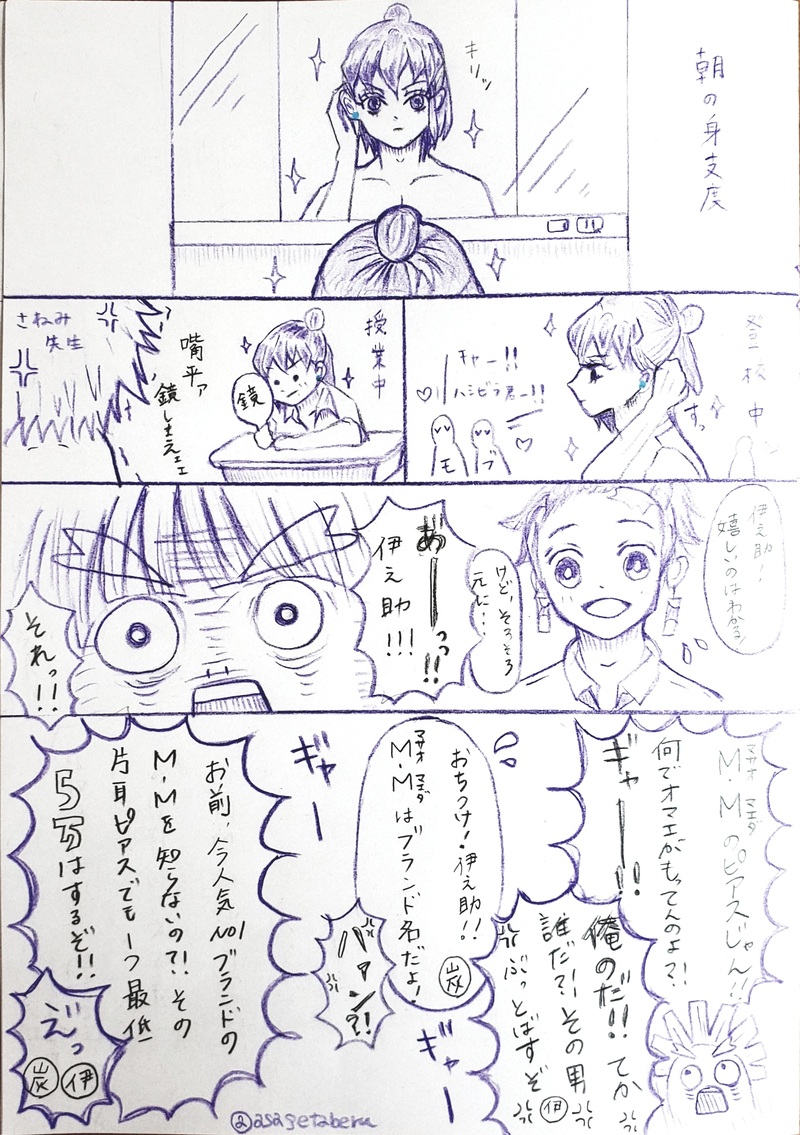 朝の身支度
キリッ
登校中
すっ
キャー!!
ハシビラ君ー!!
モ
ブ
授業中
鏡
嘴平ァ
鏡しまえェェ
さねみ
先生
伊之助!
嬉しいのはわかる!
けど、そろそろ
元に…
あ゛ーーっっ!!
伊之助!!!
それっ!!
マサオ マエダ
M・Mのピアスじゃん!!
何でオマエがもってんのよ?!
ギャーーー!!
俺のだ!!てか
誰だ?!その男
ぶっとばすぞ
伊
おちつけ!伊之助!!
マサオ マエダ
M・Mはブランド名だよ!
炭
ハァン?!
ギャー
ギャー
お前、今人気No1ブランドの
M・Mを知らないの?!その
片耳ピアスでも1つ最低
5万はするぞ!!
えっ
伊
炭
@asagetaberu